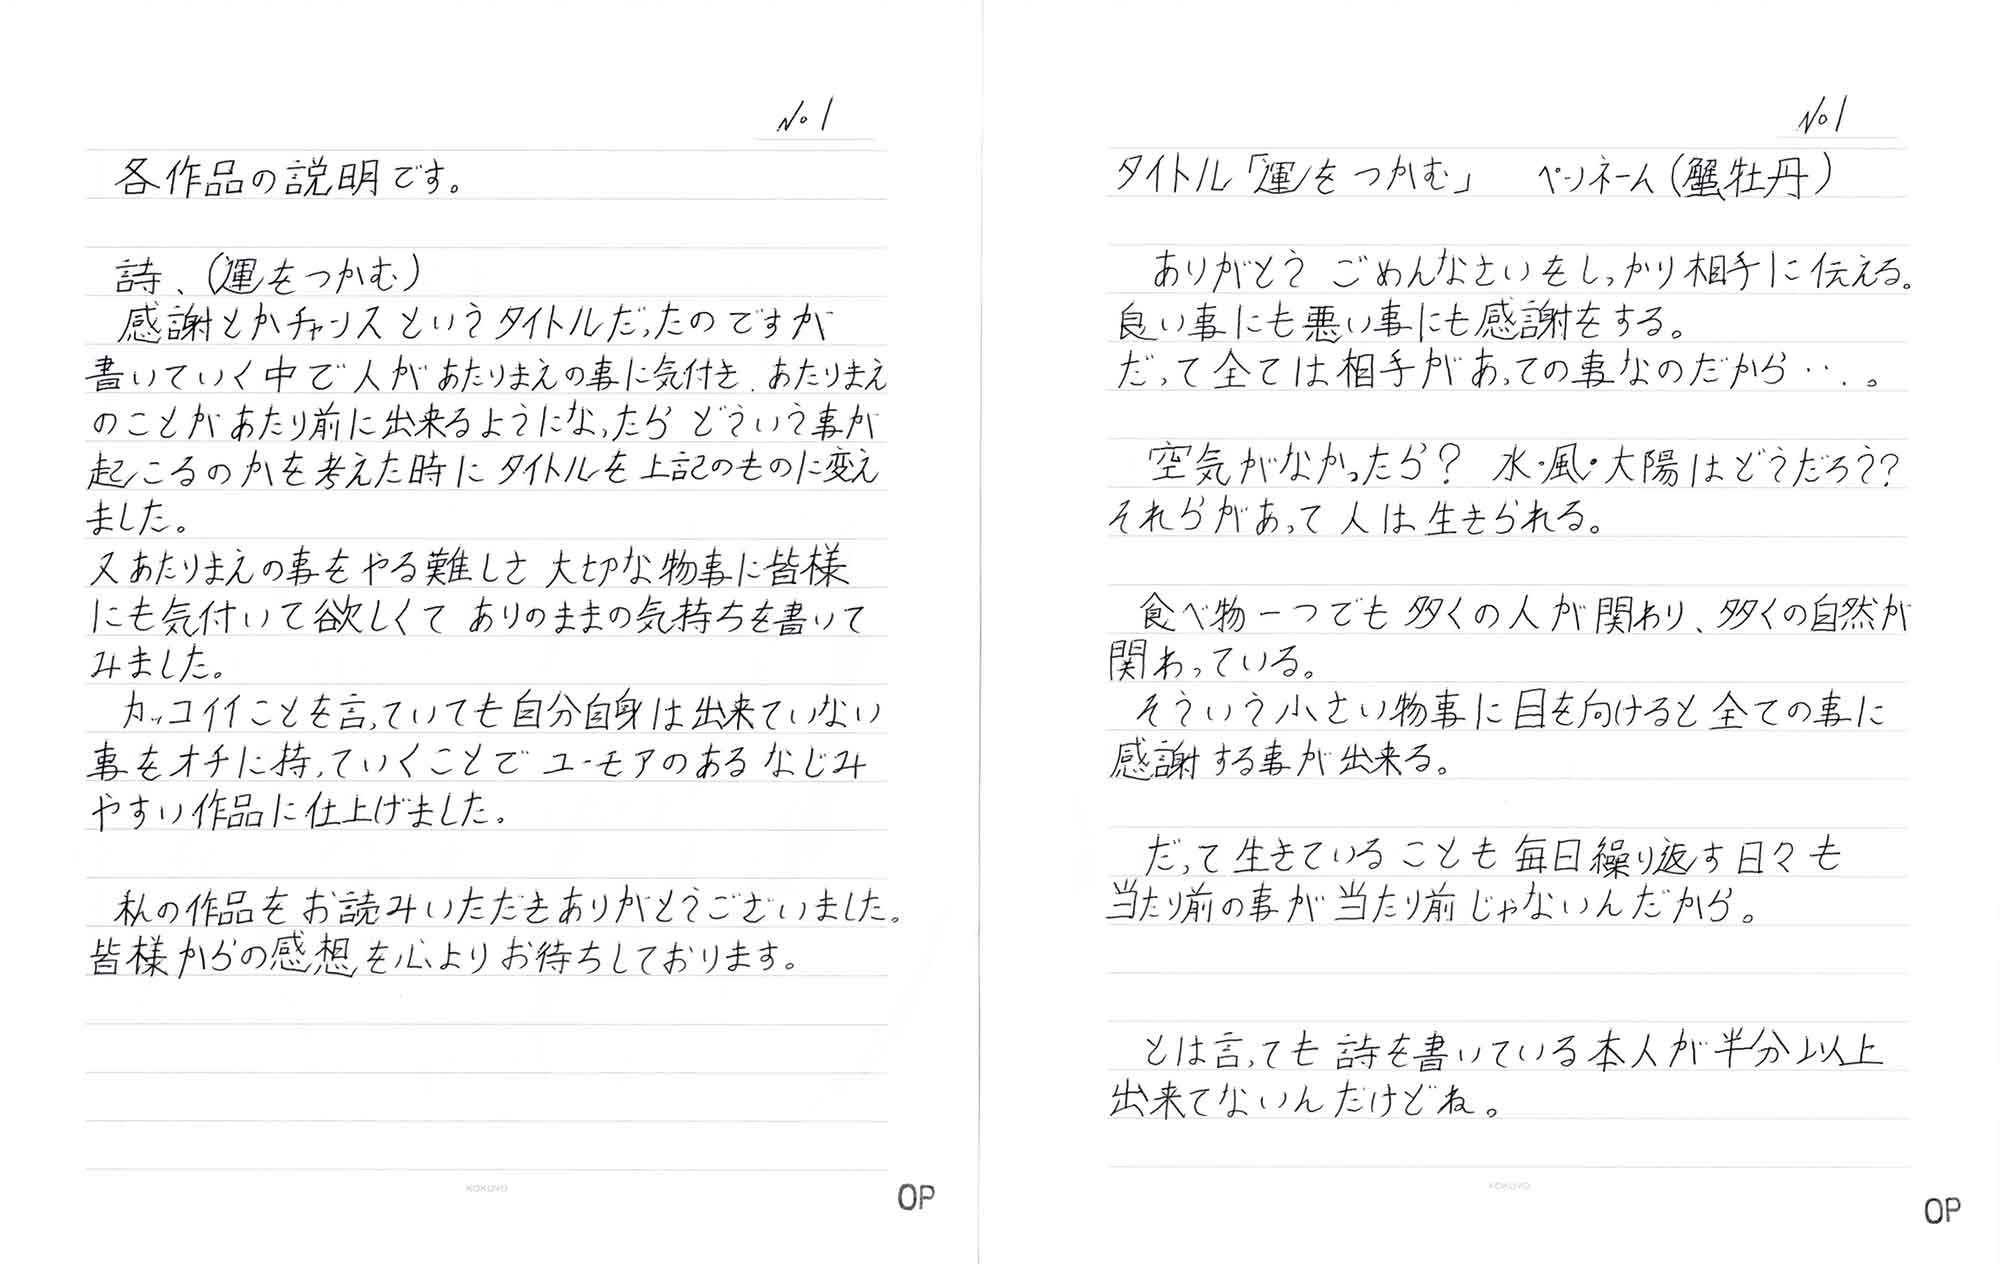 No 1
各作品の説明です。
詩、(運をつかむ)
感謝とかチャンスというタイトルだったのですが
書いていく中で人があたりまえの事に気付き、あたりまえ
のことがあたり前に出来るようになったら どういう事が
起こるのかを考えた時に タイトルを上記のものに変え
ました。
又あたりまえの事をやる難しさ 大切な物事に皆様
にも気付いて欲しくて ありのままの気持ちを書いて
みました。
カッコイイことを言っていても自分自身は出来ていない
事をオチに持っていくことで ユーモアのある なじみ
やすい作品に仕上げました。
私の作品をお読みいただきありがとうございました。
皆様からの感想を心よりお待ちしております。
KOKUYO
OP
No 1
タイトル「運をつかむ」 ペンネーム(蟹牡丹)
ありがとう ごめんなさいをしっかり相手に伝える。
良い事にも悪い事にも感謝をする。
だって全ては相手があっての事なのだから・・・。
空気がなかったら? 水・風・太陽はどうだろう?
それらがあって人は生きられる。
食べ物一つでも多くの人が関わり、多くの自然が
関わっている。
そういう小さい物事に目を向けると全ての事に
感謝する事が出来る。
だって生きていることも毎日繰り返す日々も
当たり前の事が当たり前じゃないんだから。
とは言っても詩を書いている本人が半分以上
出来てないんだけどね。
KOKUYO
OP